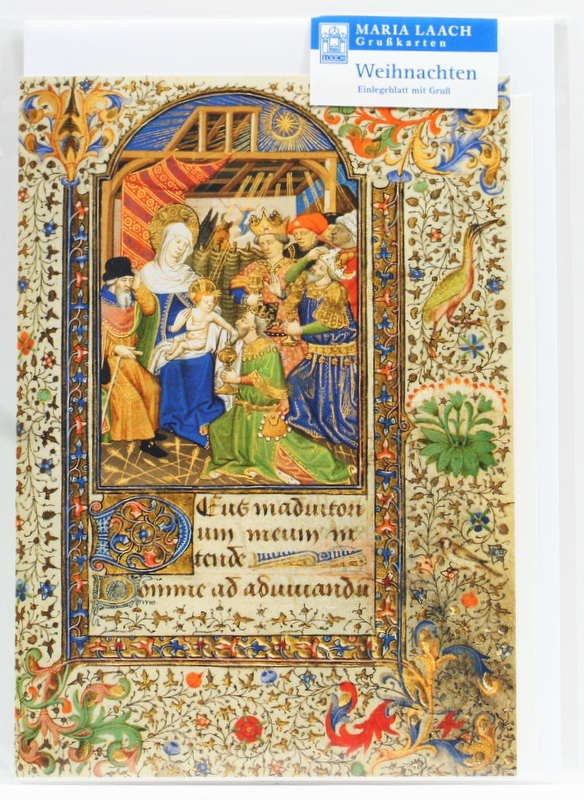 MARIA LAACH
Grußkarten
LAACH
Weihnachten
Einlegeblatt mit Gruß
Deus in adiutori
um meum in
tende
Domine ad adiuuandu